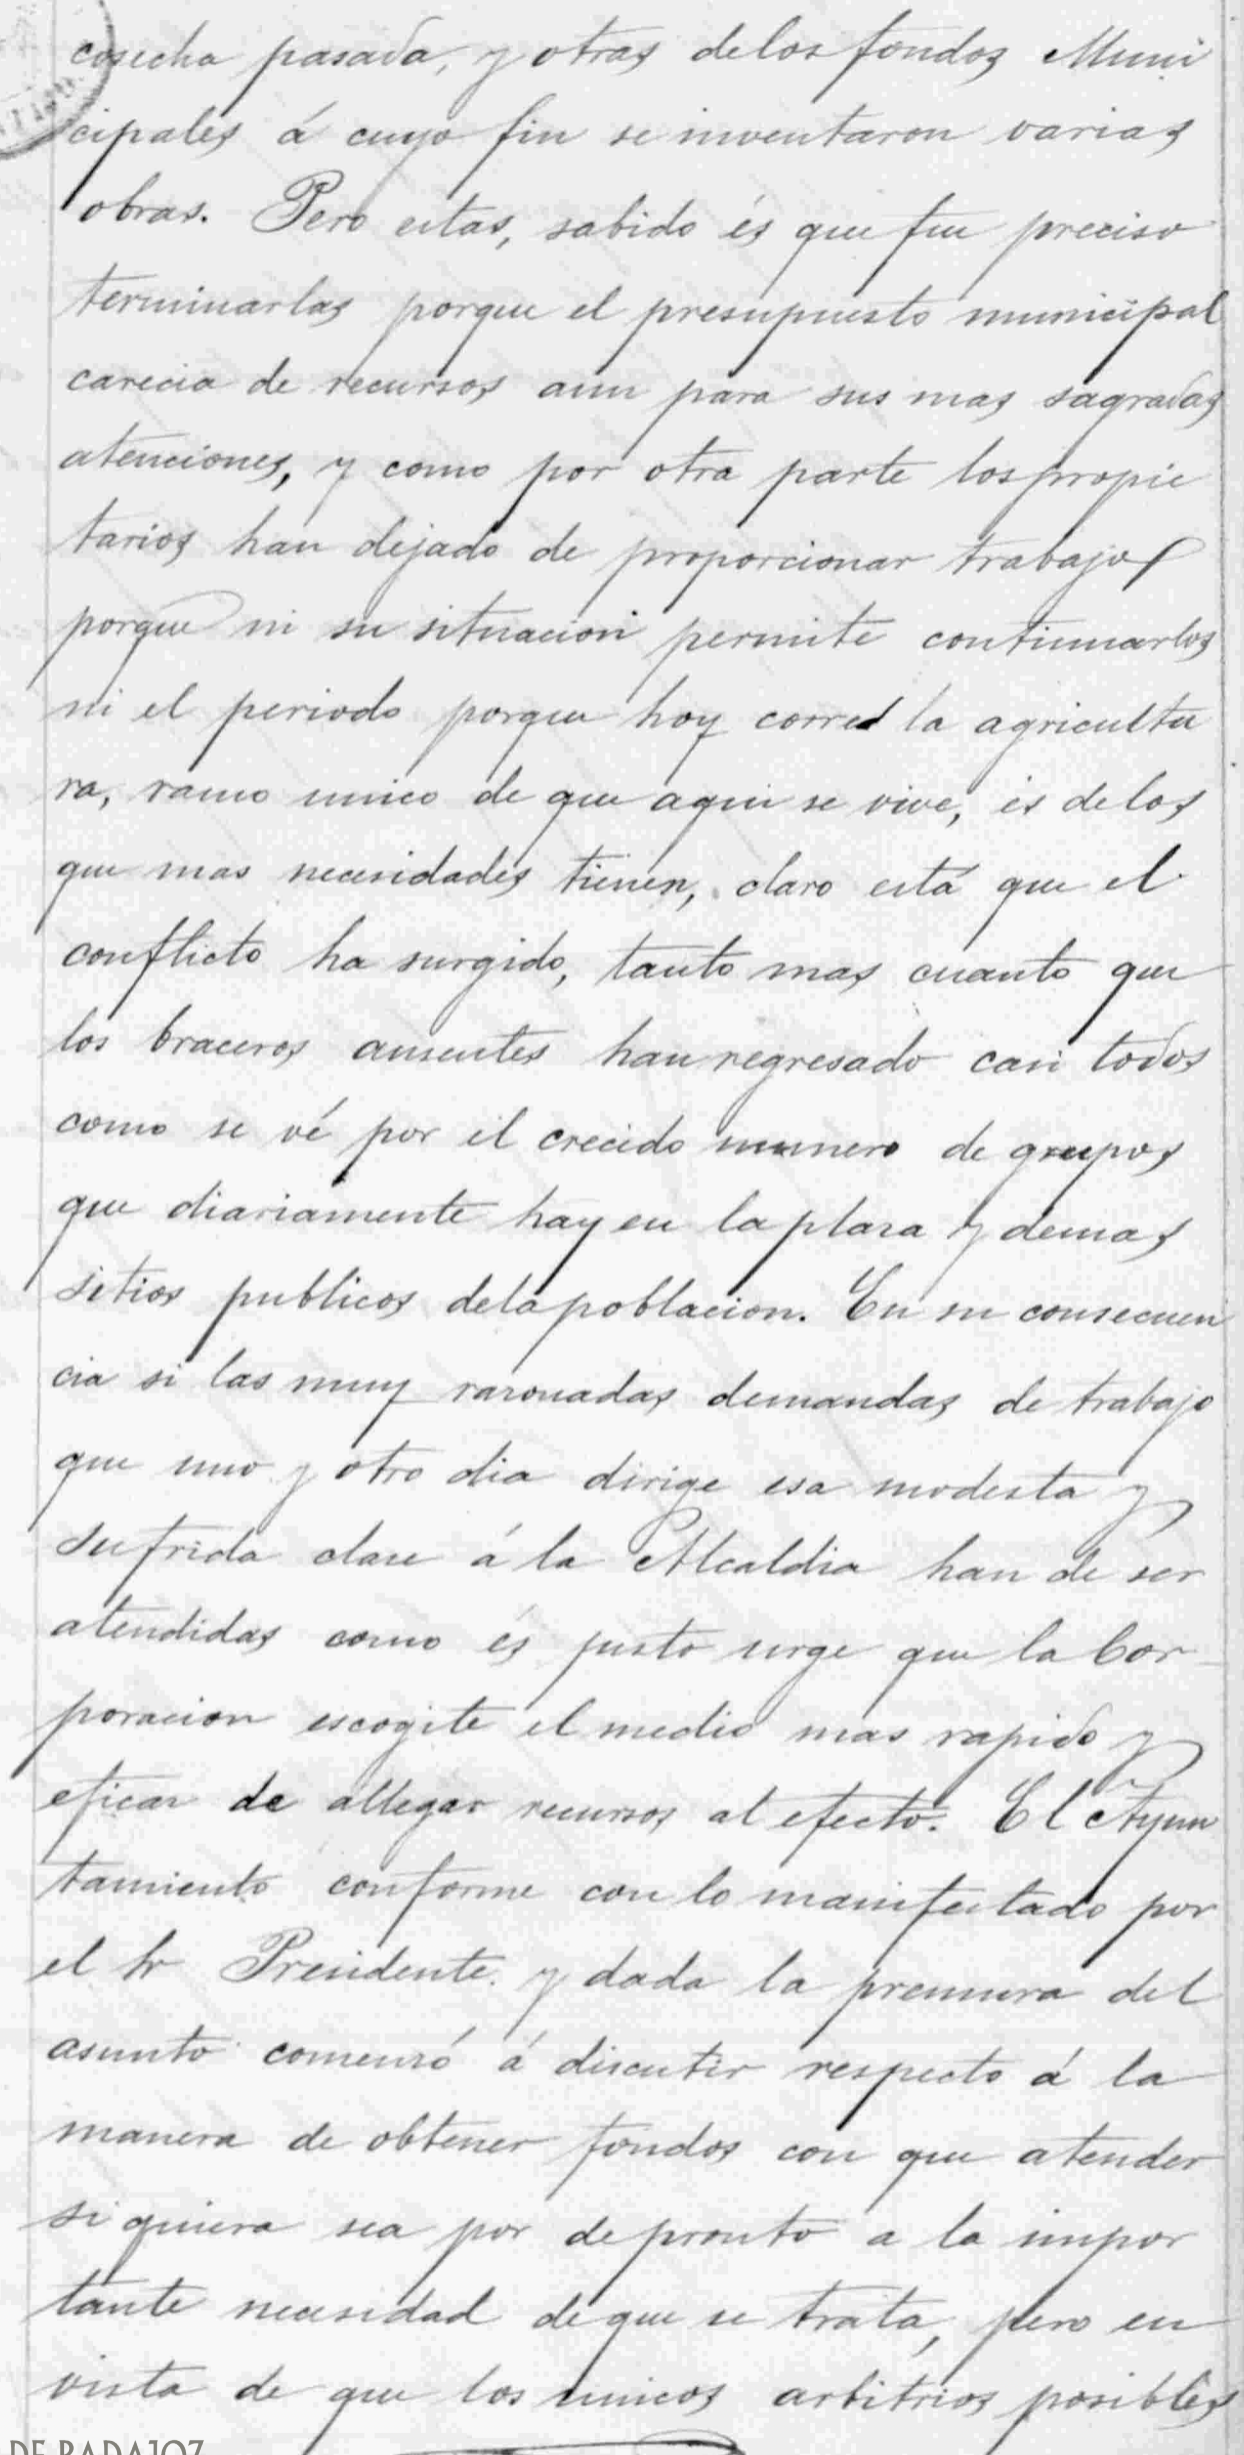 cosecha pasada, y otras delos fondos Muni
cipales á cuyo fin se inventaron varias
obras. Pero estas, sabido és que fue preciso
terminarlas porque el presupuesto municipal
carecia de recursos aun para sus mas sagradas
atenciones, y como por otra parte los propie
tarios han dejado de proporcionar trabajos
porque ni su situacion permite continuarlos
ni el periodo porque hoy corre la agricultu
ra, ramo unico de que aqui se vive, es de los
que mas necesidades tienen, claro está que el
conflicto ha surgido, tanto mas cuanto que
los braceros ausentes han regresado casi todos
como se vé por el crecido numero de grupos
que diariamente hay en la plaza y demas
sitios publicos dela poblacion. En su consecuen
cia si las muy razonadas demandas de trabajo
que uno y otro dia dirige esa modesta y
sufrida clase á la Alcaldia han de ser
atendidas como és justo urge que la Cor-
poracion escogite el medio mas rapido y
eficaz de allegar recursos al efecto. El Ayun
tamiento conforme con lo manifestado por
el Sr Presidente. y dada la premura del
asunto comenzó á discutir respecto á la
manera de obtener fondos con que atender
si quiera sea por de pronto a la impor
tante necesidad de que se trata, pero en
vista de que los unicos arbitrios posibles
DE BADAJOZ